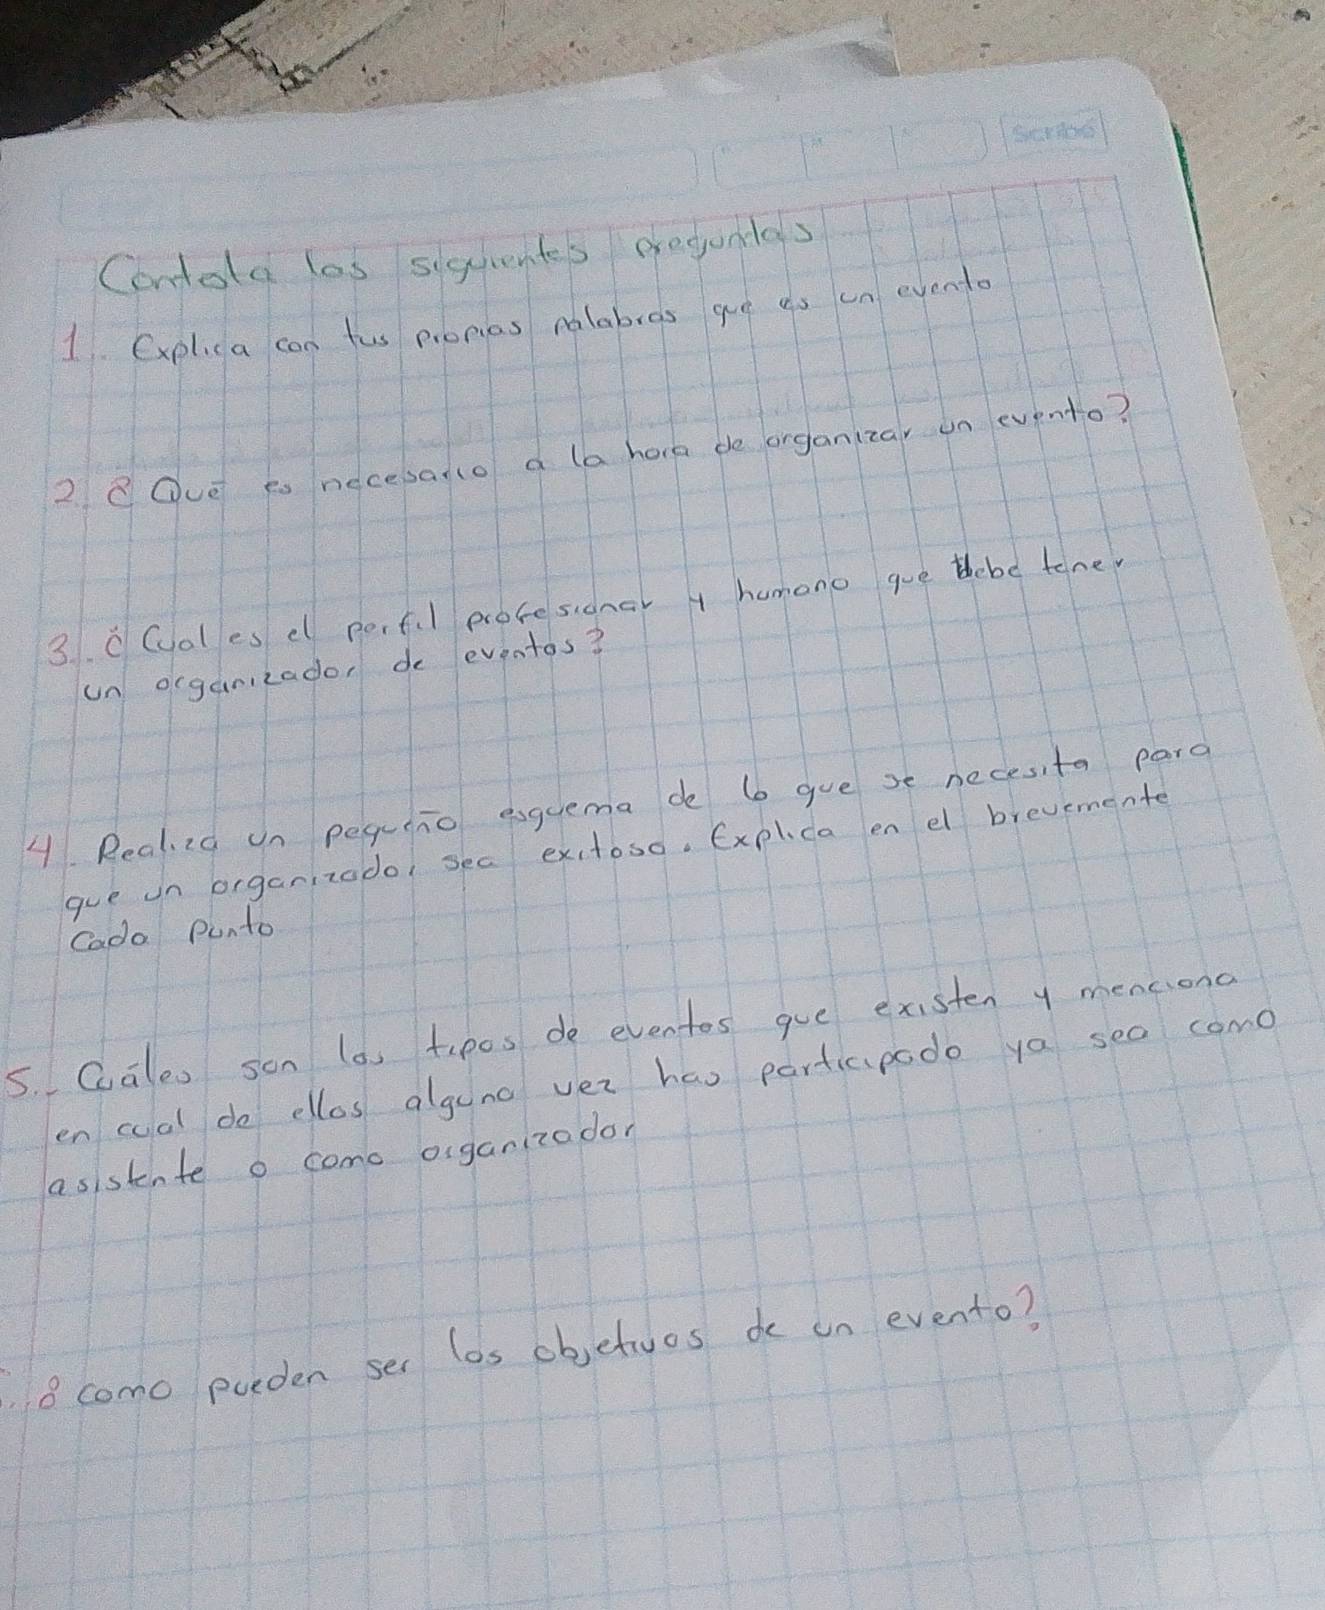 Scribe
Contesta las siguientes preguntas
1. Explica con tus propias palabras que es un evento
2. ¿Qué es necesario a la hora de organizar un evento?
3. ¿Cual es el perfil profesionar y humano que debe tener
un organizador de eventos?
4. Realiza un pequeño esquema de lo que se necesita para
que un organizador sea exitoso. Explica en el brevemente
Cada punto
5. Cuáles son los tipos de eventos que existen y menciona
en cual de ellos alguna vez has participado ya sea como
asistente o como organizador
¿como pueden ser los objetivos de un evento?